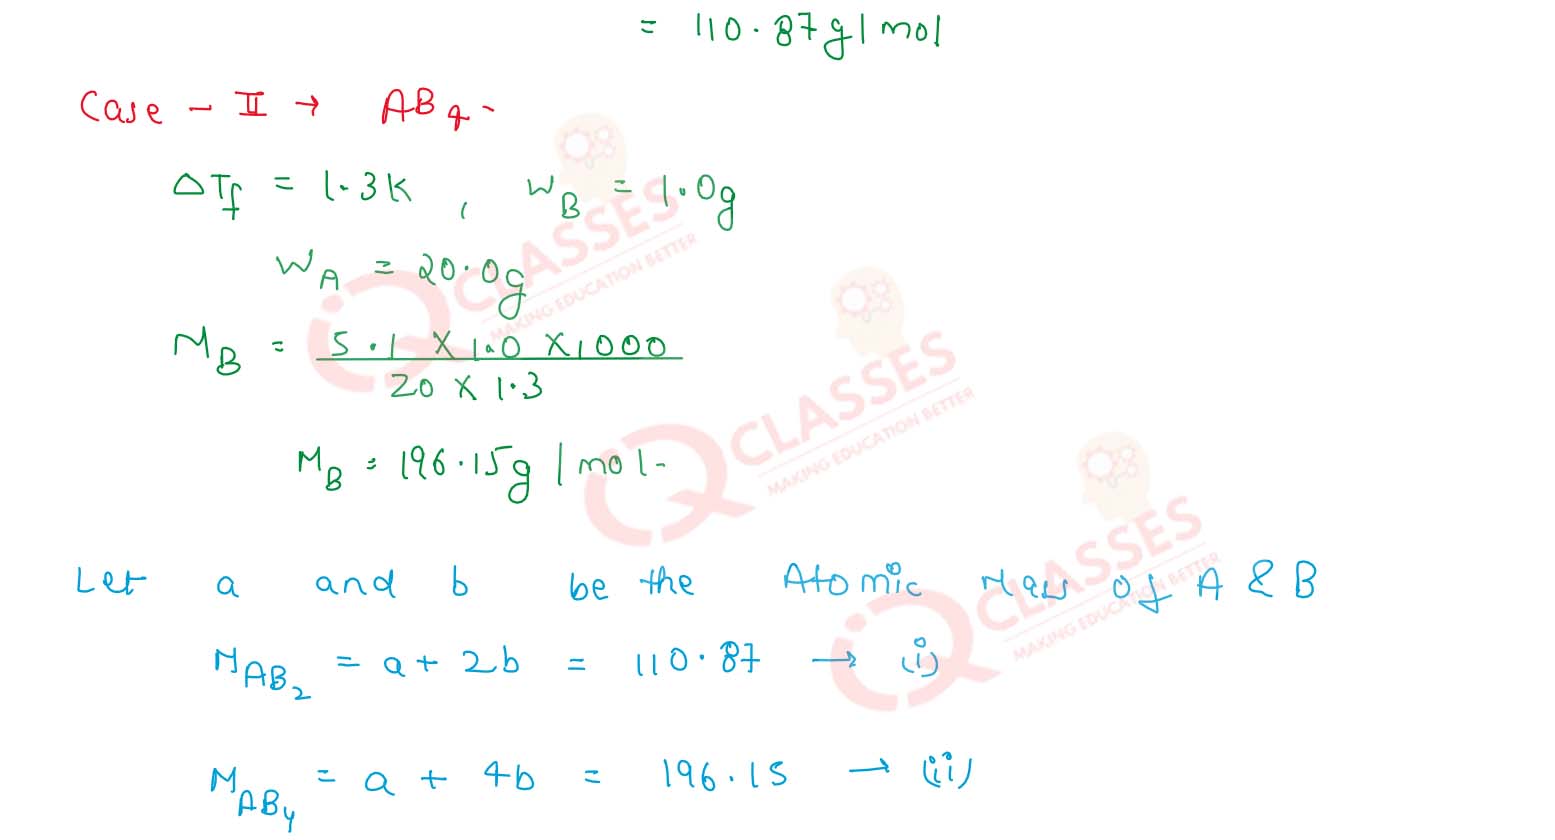 = 110.87g/mol
Case - II → AB4-
ΔTf = 1.3K , WB = 1.0g
WA = 20.0g
MB = 5.1 X 1.0 X 1000
20 X 1.3
MB = 196.15g/mol-
Let a and b be the Atomic Mass of A & B
MAB2 = a + 2b = 110.87 → (i)
MAB4 = a + 4b = 196.15 → (ii)
iQ CLASSES
MAKING EDUCATION BETTER
iQ CLASSES
MAKING EDUCATION BETTER
iQ CLASSES
MAKING EDUCATION BETTER